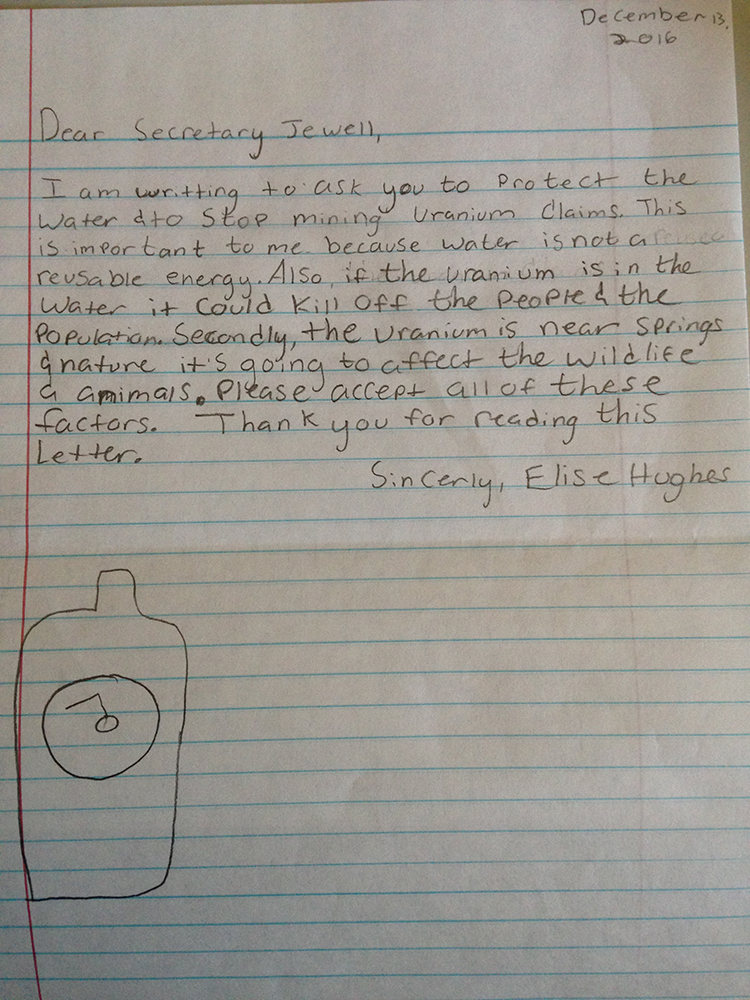 December 13,
2016
Dear Secretary Jewell,
I am writting to ask you to protect the
Water & to Stop mining Uranium Claims. This
is important to me because water is not a
reusable energy. Also, if the uranium is in the
Water it Could Kill off the people & the
Population. Secondly, the Uranium is near Springs
& nature it's going to affect the wildlife
& animals. Please accept all of these
factors. Thank you for reading this
Letter.
Sincerly, Elise Hughes